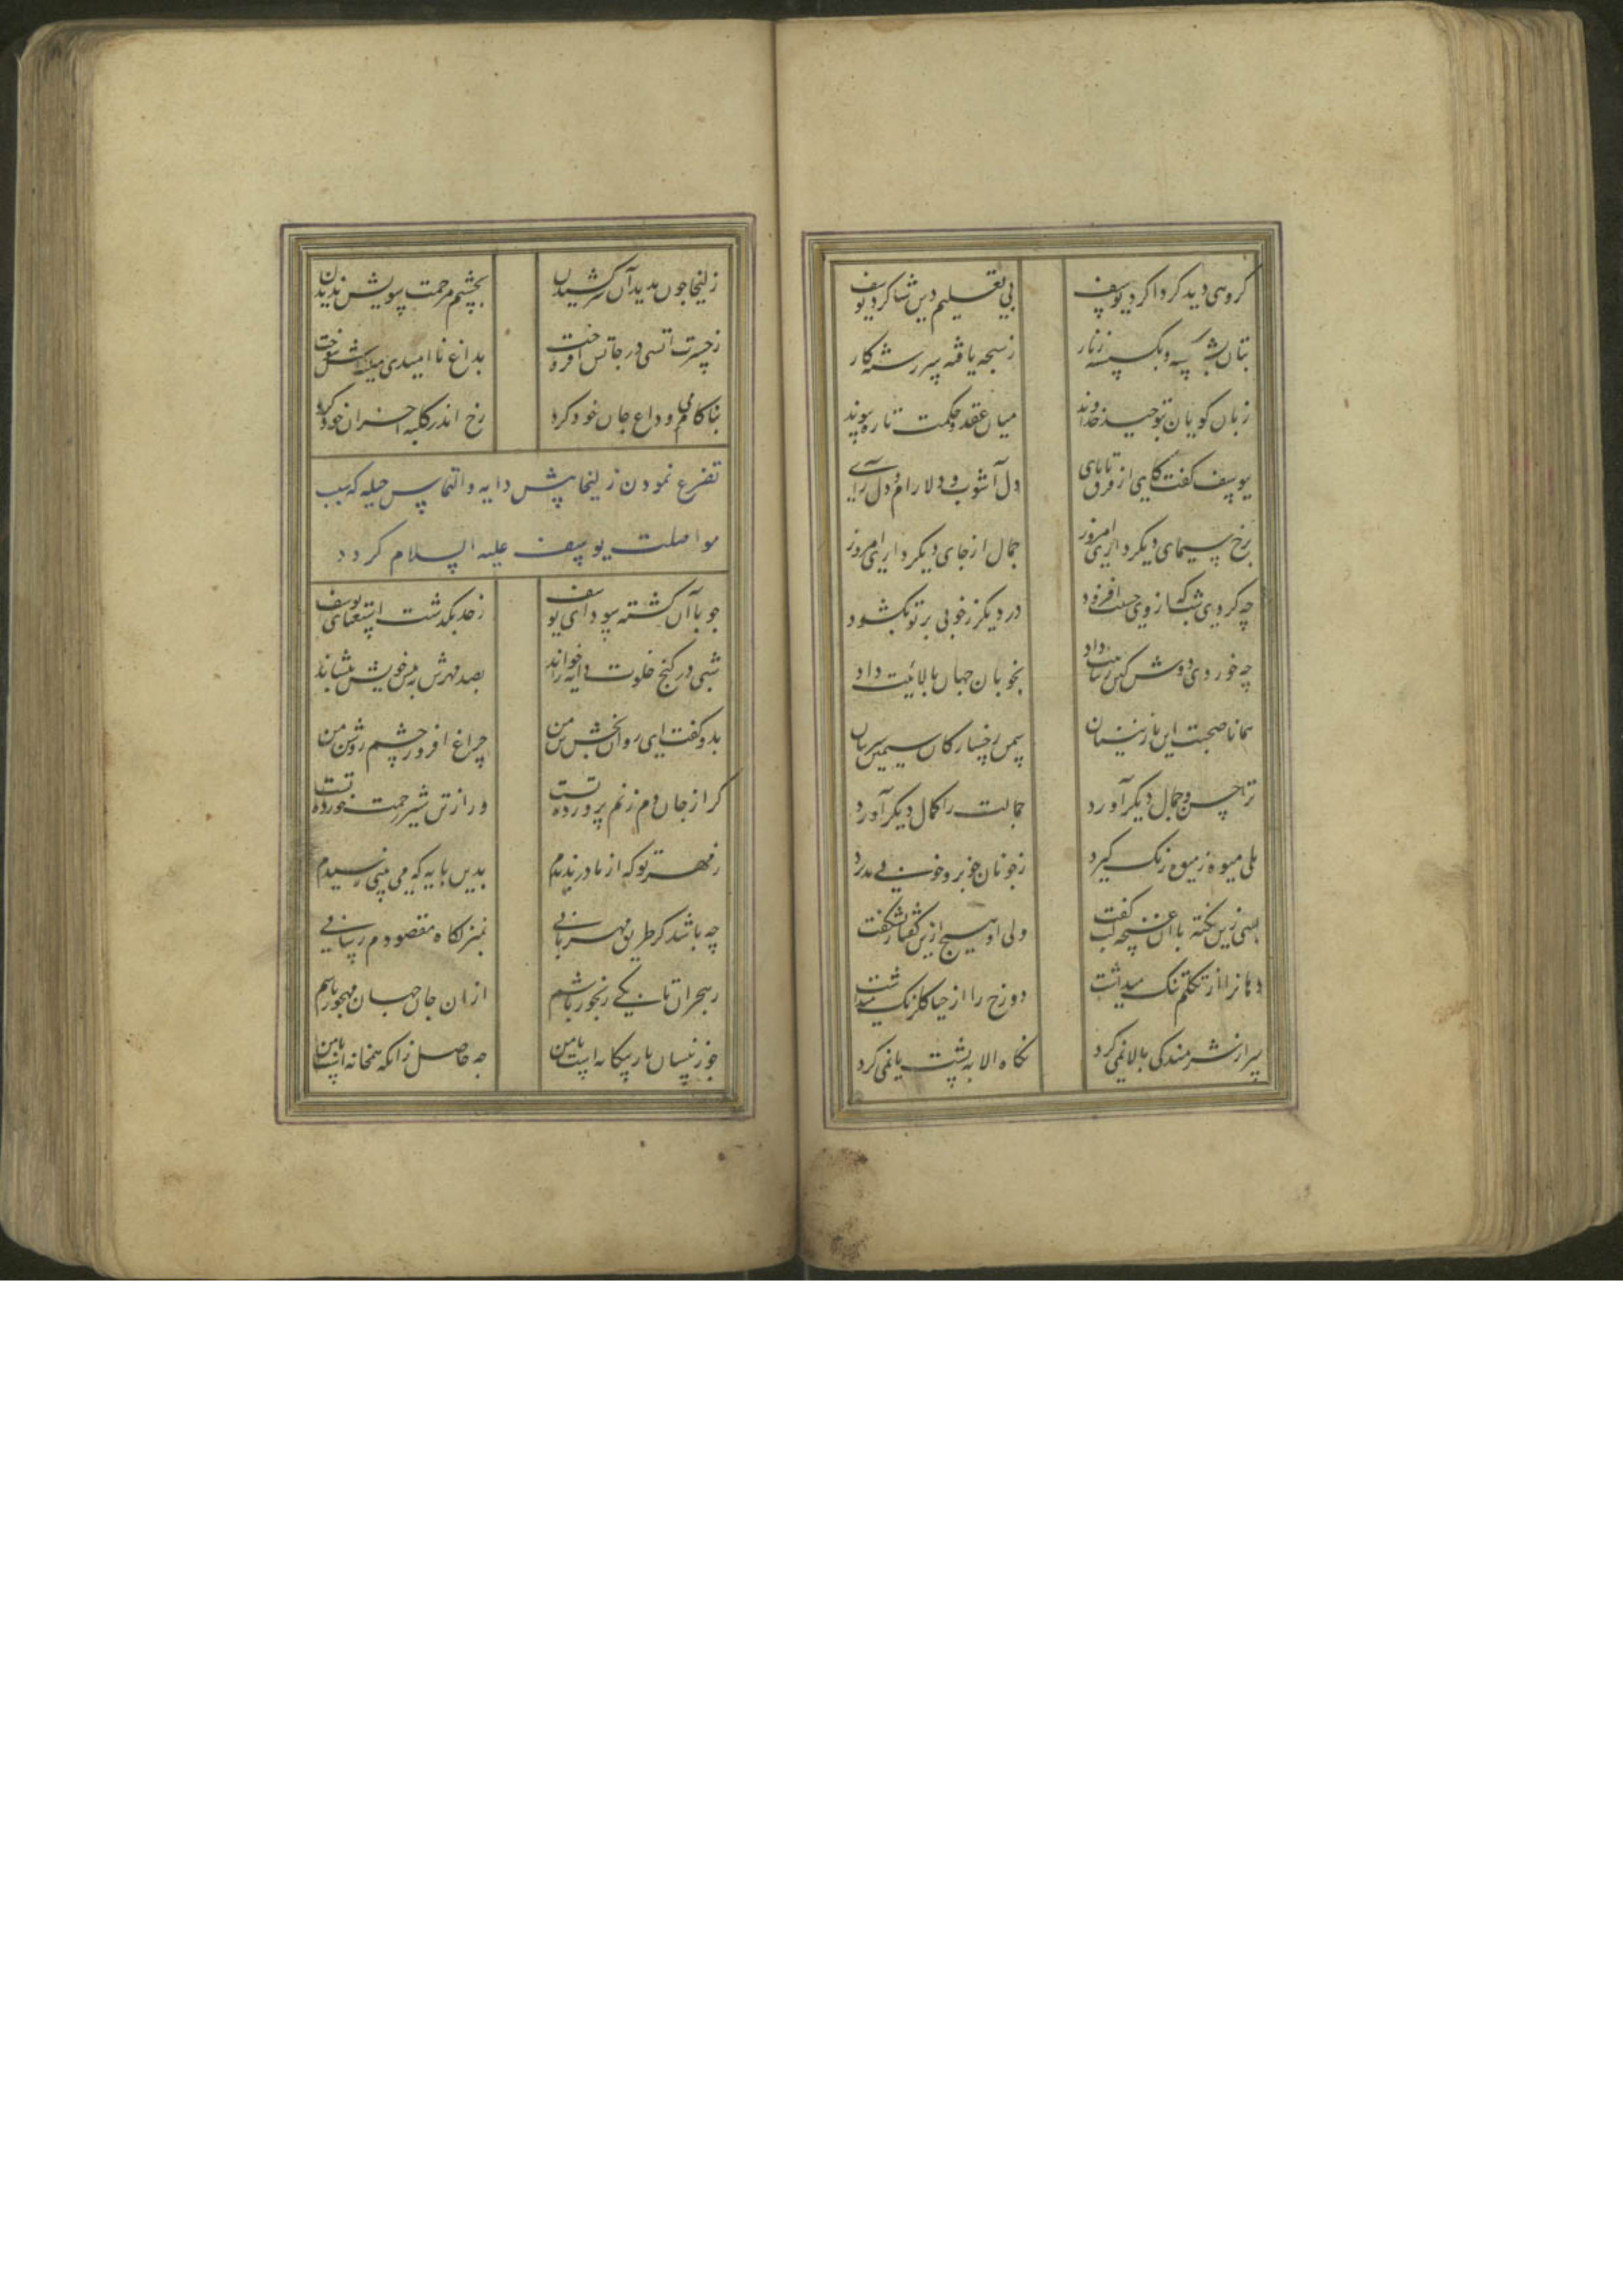 گروهی دید گرداگرد یوسف پی تعلیم دین شاگرد یوسف
بتان بشکسته و بگسسته زنار ز سبحه یافته سررشته کار
زبان گویان توحید خداوند میان عقد حکمت تازه پیوند
بیوسف گفت کای از فرق تا پای دل آشوب و دلارام و دل آرای
برخ سیمای دیگر داری امروز جمال از جای دیگر داری امروز
چه کردی شب که از وی حسنت افزود در دیگر ز خوبی بر تو بگشود
چه خوردی دوش کین رسانت داد بخوبان جهان بالائیت داد
همانا صحبت این نازنینان سمن رخسارگان سیمین سرینان
ترا حسن و جمال دیگر آورد جمالت را کمال دیگر آورد
بلی میوه ز میوه رنگ گیرد ز خوبان خوبرو خوبی پذیرد
بسی زین نکته با آن غنچه لب گفت ولی او هیچ ازین گفتار نشکفت
دهانرا از تکلم تنگ میداشت دو رخ را از حیا گلرنگ میداشت
سر از شرمندگی بالا نمی کرد نگاه الا به پشت پا نمی کرد
زلیخا چون بدید آن سرکشیدن بچشم مرحمت سویش ندیدن
ز حسرت آتشی در جانش افروخت بداغ ناامیدی سینه اش سوخت
بناکامی وداع جان خود کرد رخ اندر کلبه احزان خود کرد
تضرع نمودن زلیخا پیش دایه و التماس حیله که سبب
مواصلت یوسف علیه السلام گردد
چو با آن گشته سودای یوسف ز حد بگذشت استغنای یوسف
شبی در کنج خلوت دایه را خواند بصد مهرش به پیش خویش بنشاند
بدو گفت ای روان بخش تن من چراغ افروز چشم روشن من
گر از جان دم زنم پرورده تست ور از تن شیر رحمت خورده تست
ز مهر تو که از مادر ندیدم بدین پایه که می بینی رسیدم
چه باشد کز طریق مهربانی بمنزلگاه مقصودم رسانی
ز هجران تا بکی رنجور باشم از ان جان جهان مهجور باشم
چو زینسان یار بیگانه است با من چه حاصل زانکه همخانه است با من